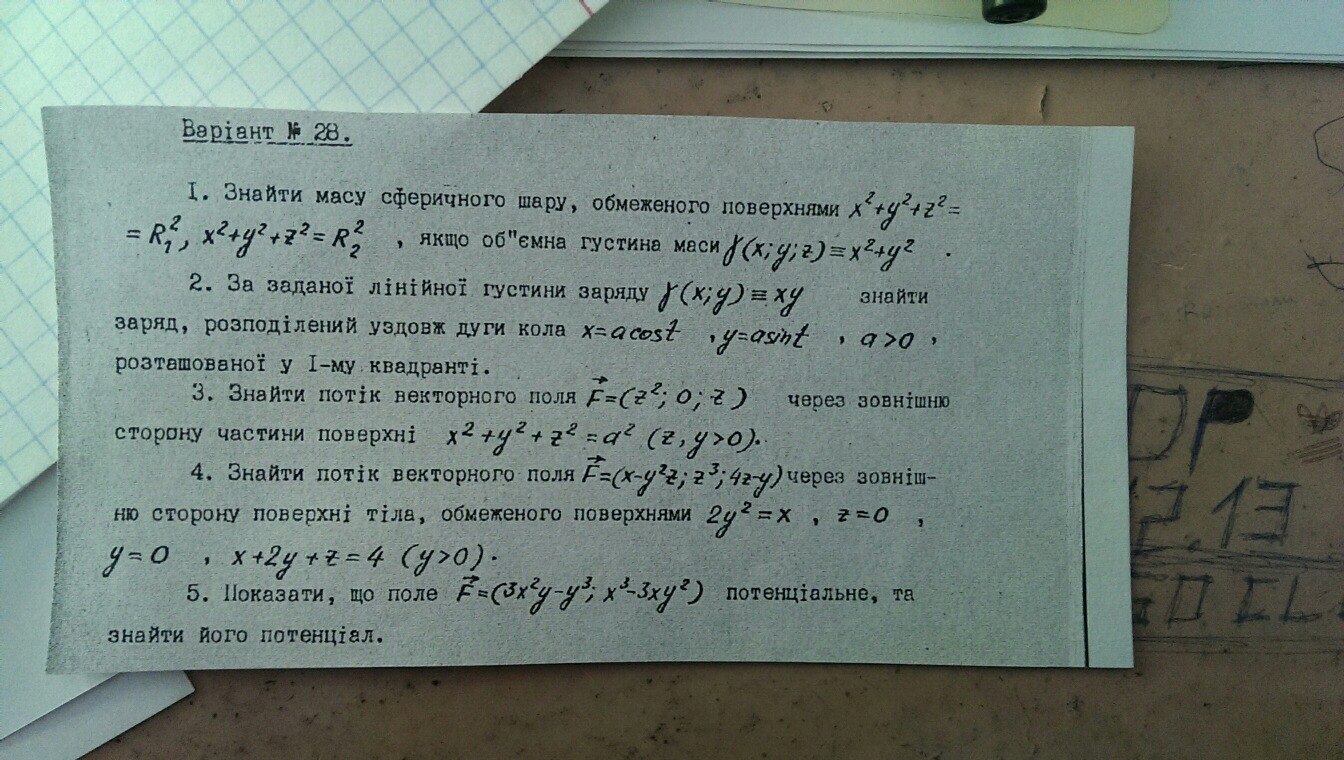 Варіант № 28.
I. Знайти масу сферичного шару, обмеженого поверхнями x²+y²+z²=
= R₁², x²+y²+z²= R₂² , якщо об"ємна густина маси γ(x;y;z)≡x²+y² .
2. За заданої лінійної густини заряду γ(x;y)≡xy знайти
заряд, розподілений уздовж дуги кола x=acost , y=asint , a>0 ,
розташованої у I-му квадранті.
3. Знайти потік векторного поля F⃗=(z²; 0; z) через зовнішню
сторону частини поверхні x²+y²+z²=a² (z,y>0).
4. Знайти потік векторного поля F⃗=(x-y²z; z³; 4z-y) через зовніш-
ню сторону поверхні тіла, обмеженого поверхнями 2y²=x , z=0 ,
y=0 , x+2y+z=4 (y>0).
5. Показати, що поле F⃗=(3x²y-y³; x³-3xy²) потенціальне, та
знайти його потенціал.
OP
12.13
GO CL